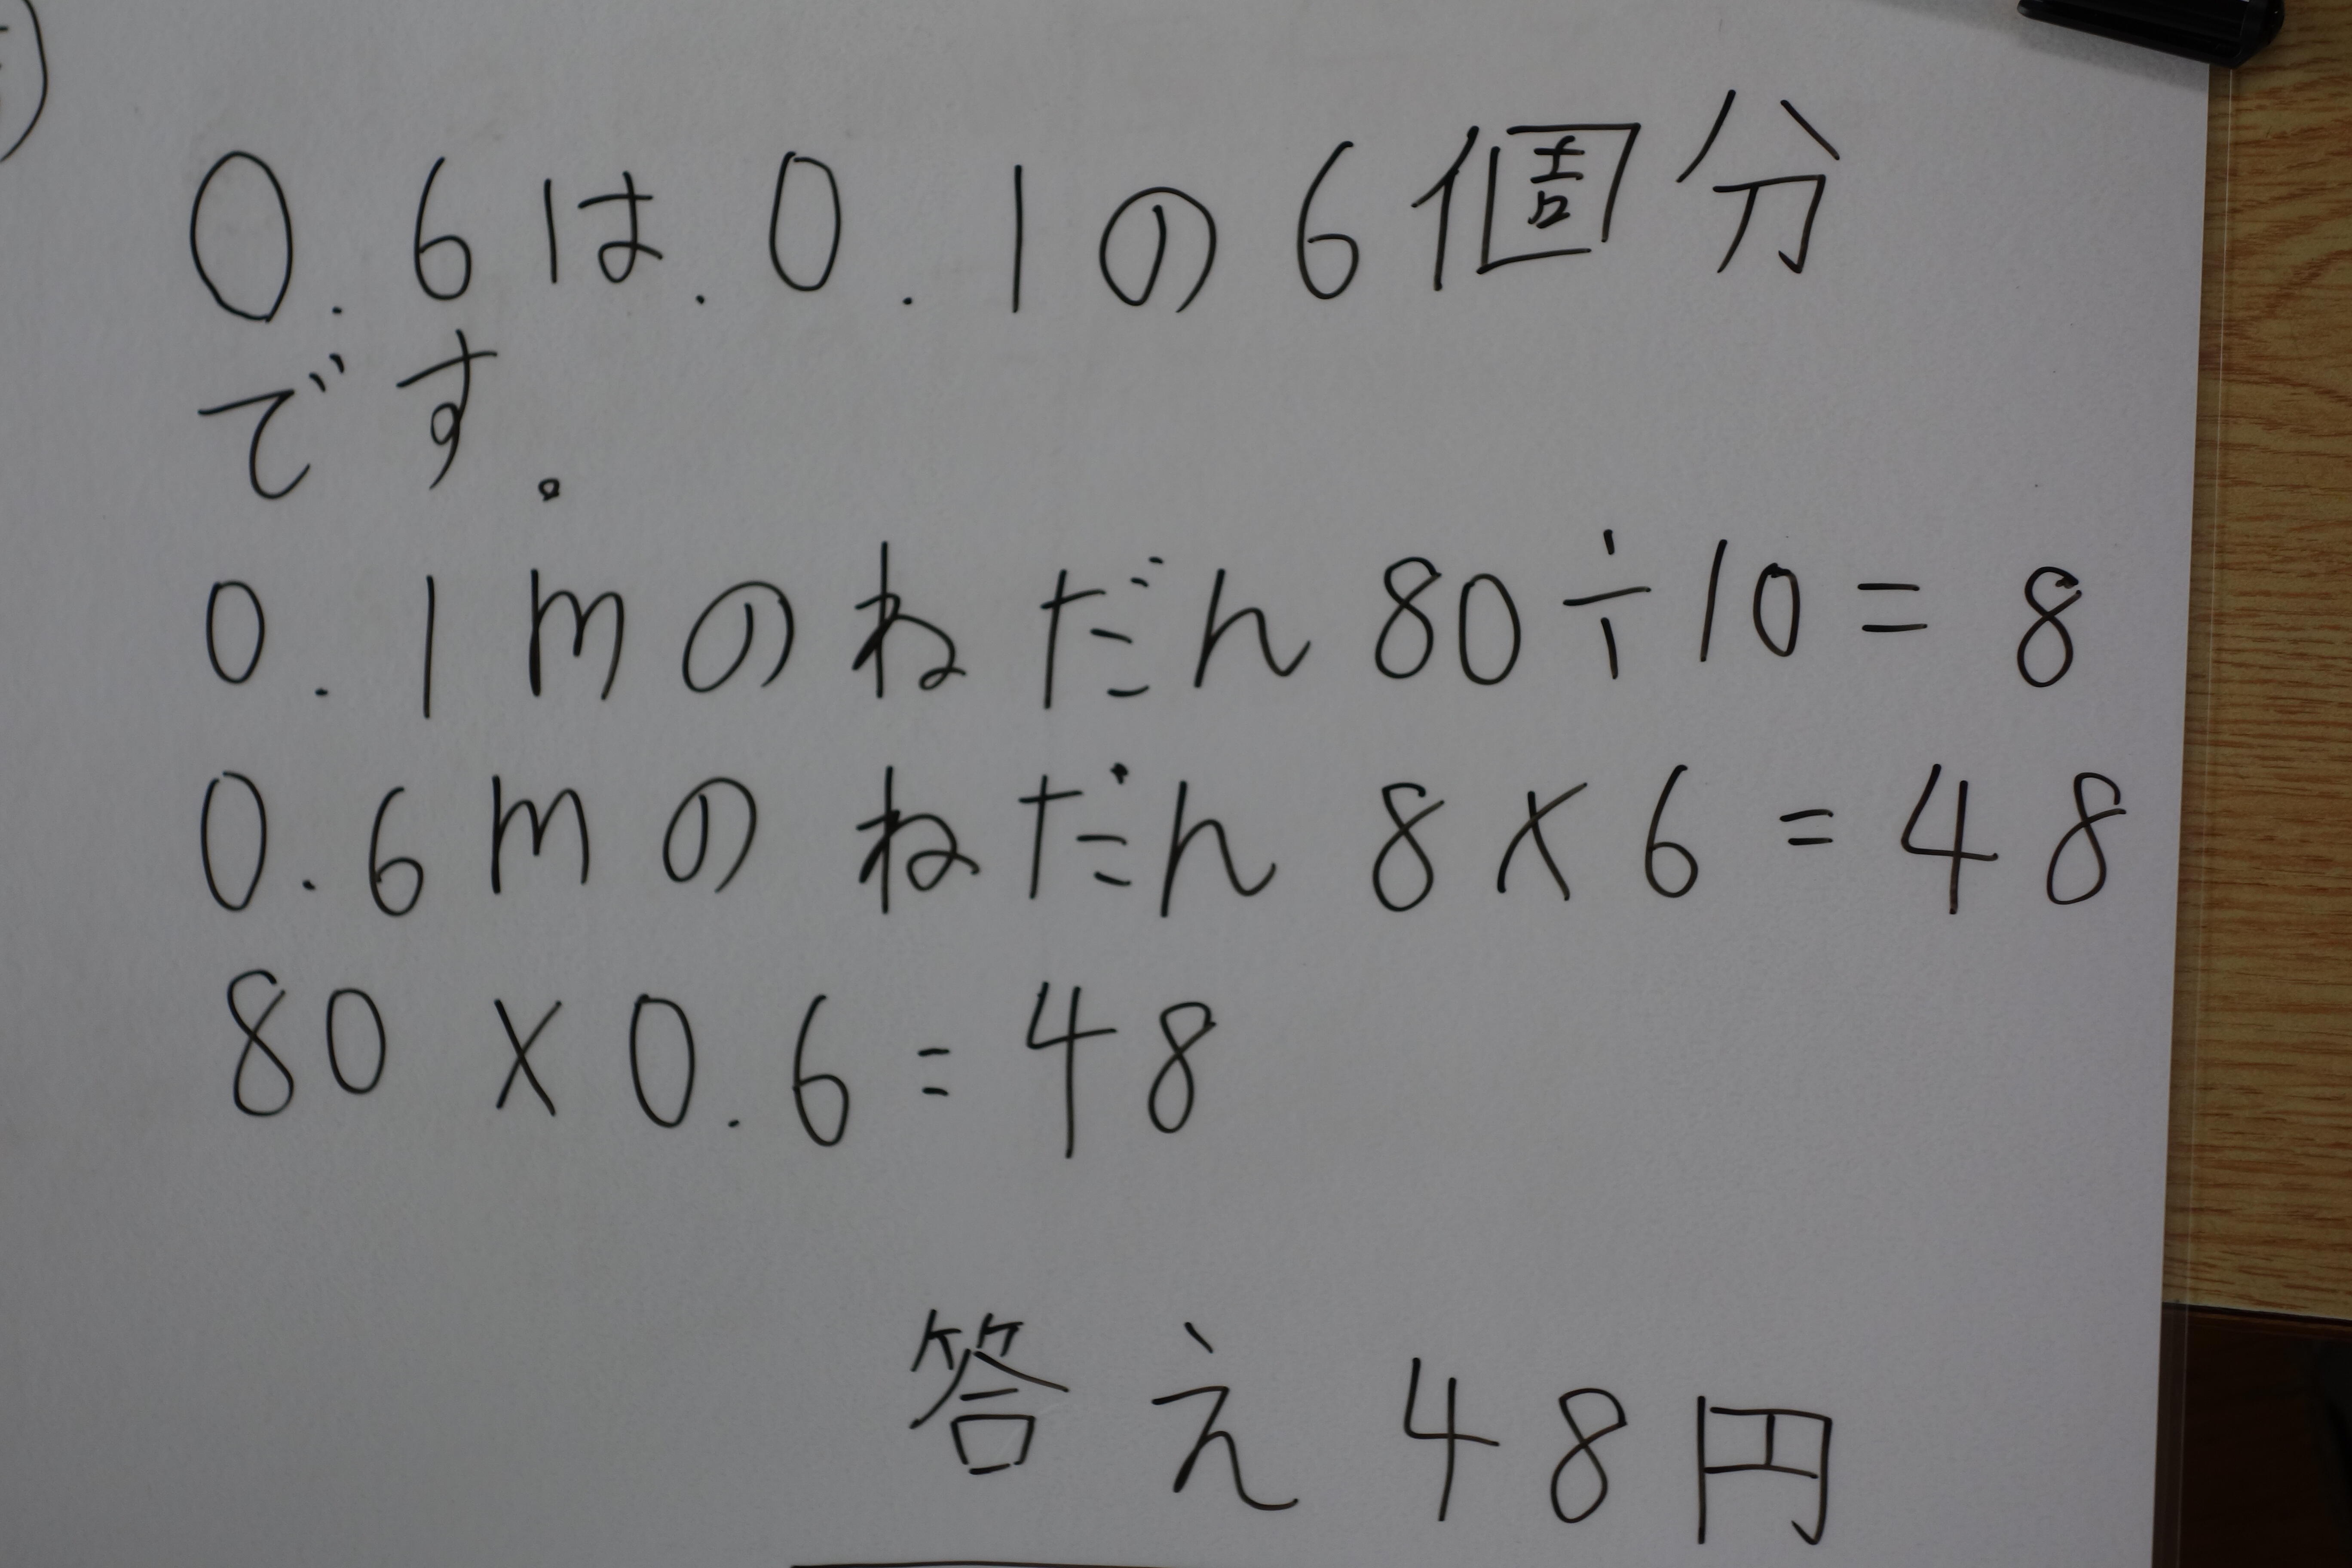 0.6は.0.1の6個分
です.
0.1mのねだん80÷10=8
0.6mのねだん8×6=48
80×0.6=48
答え48円